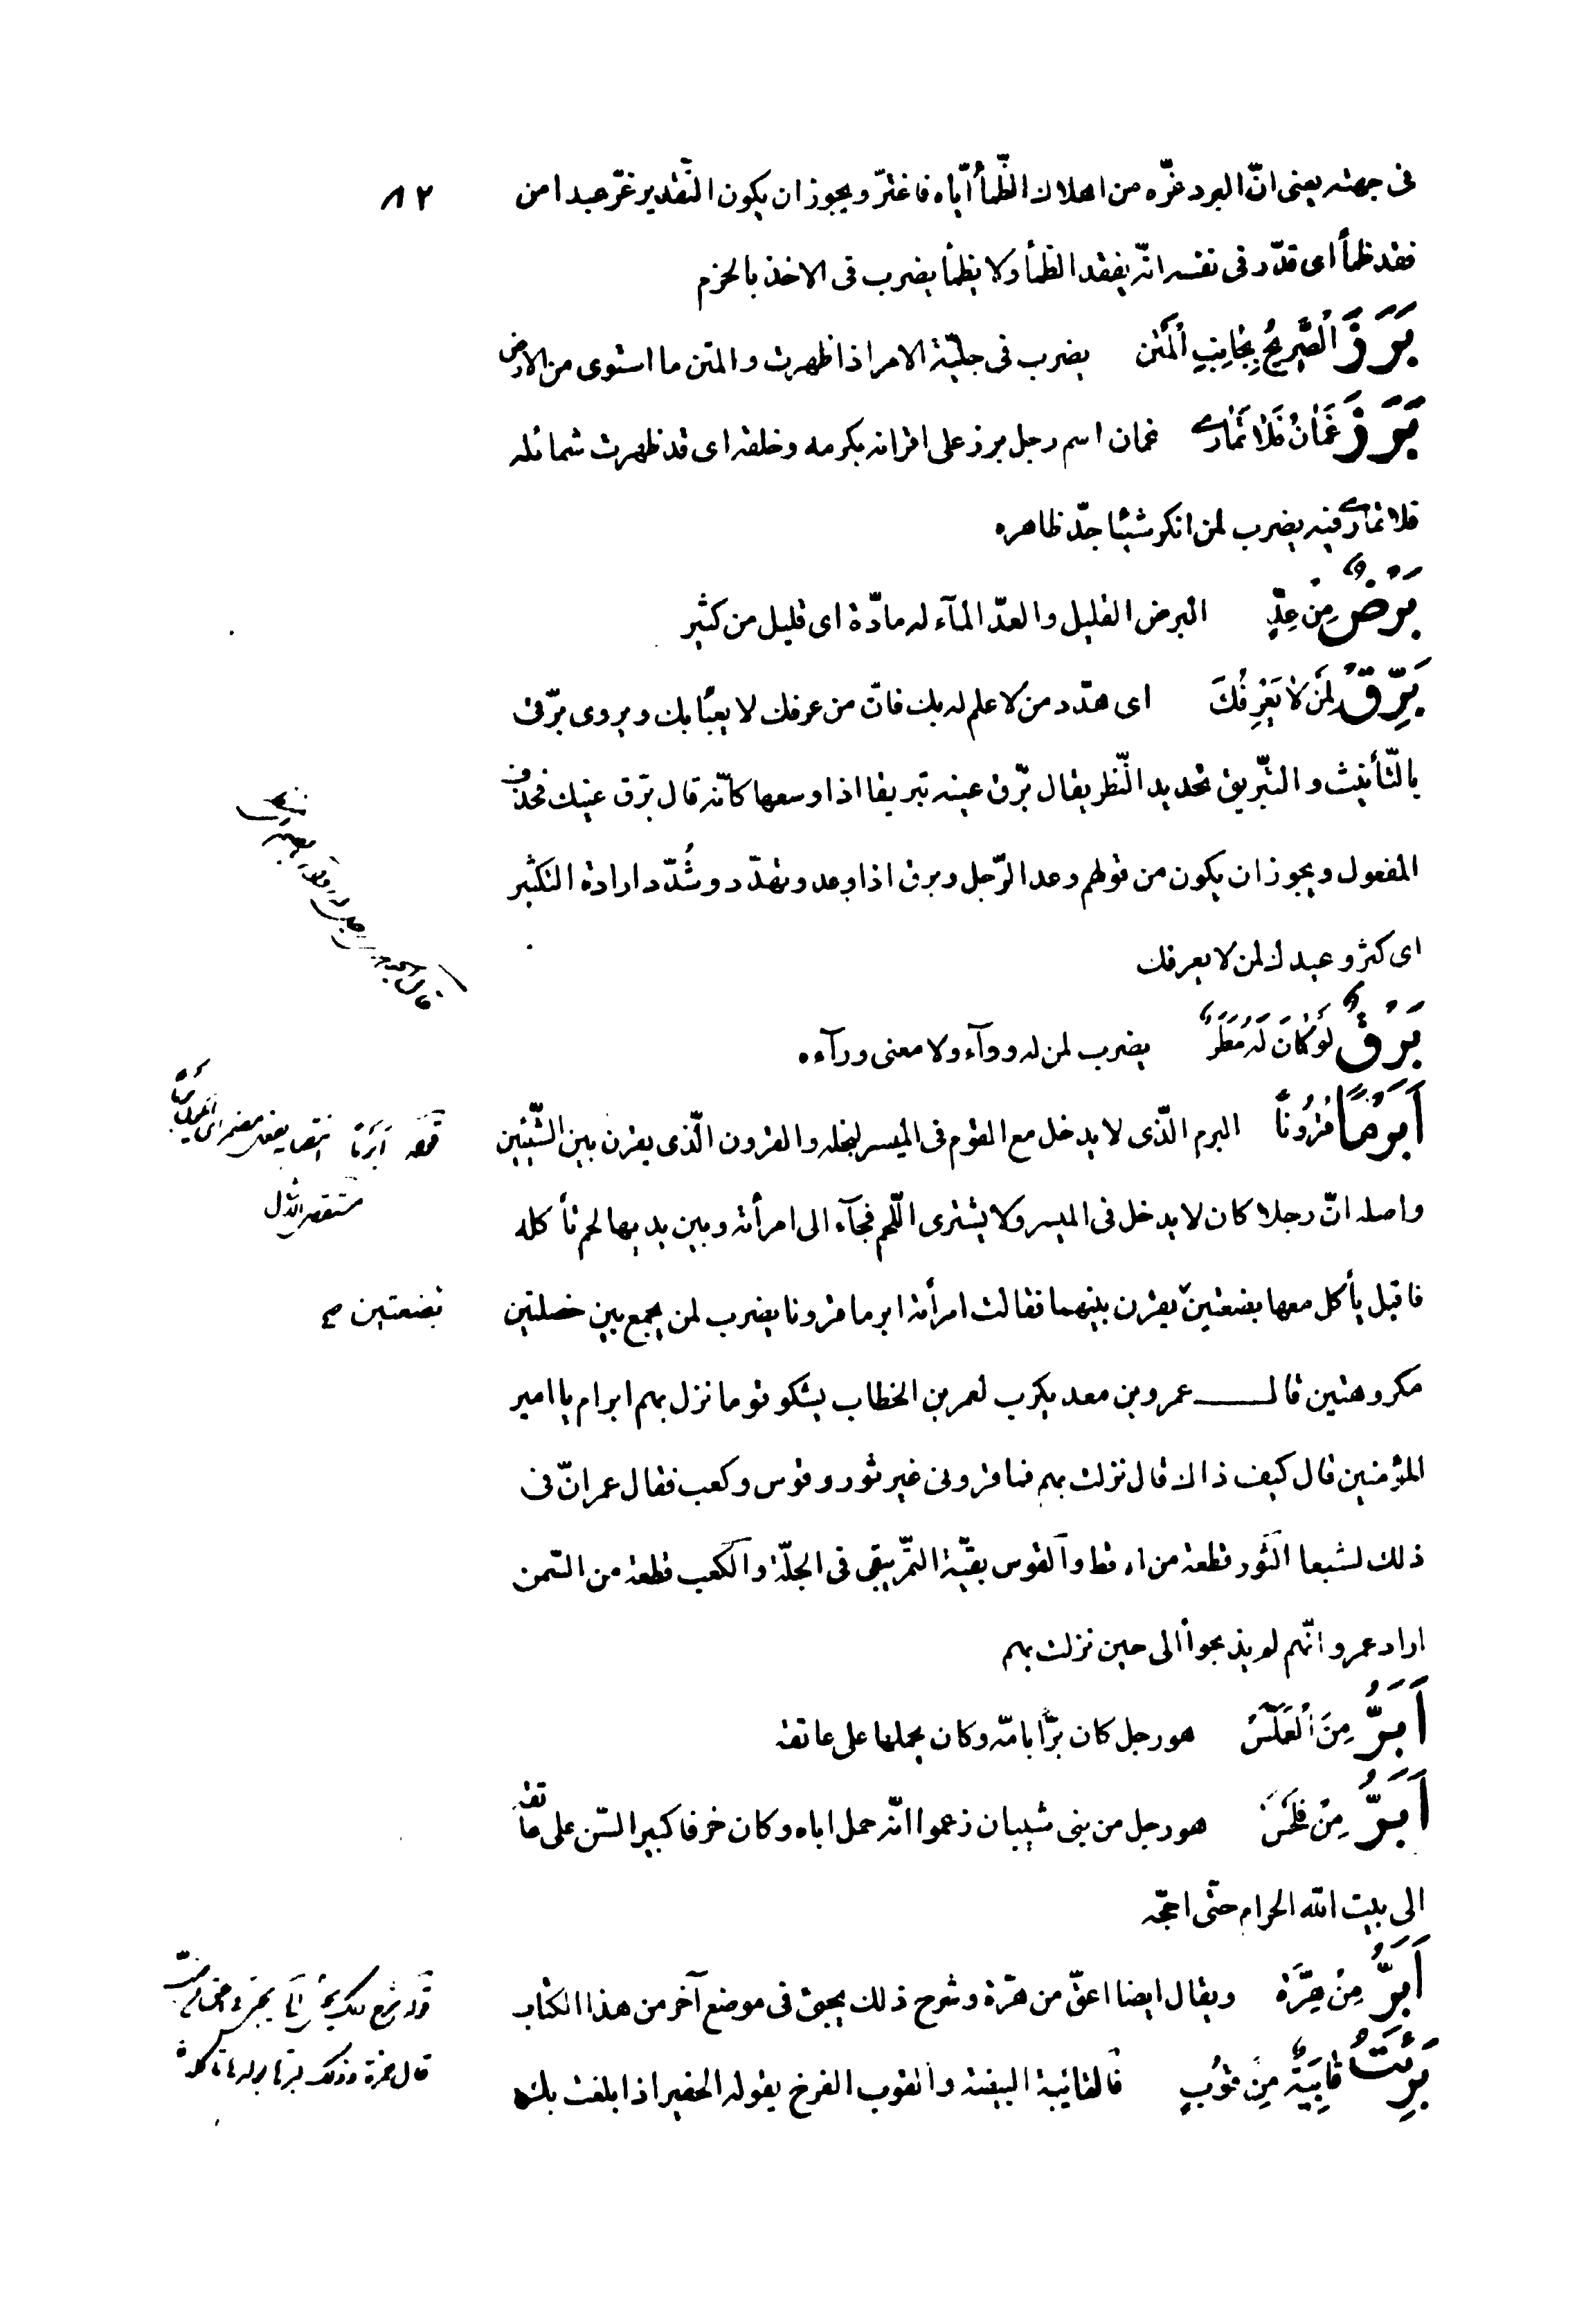 ٨٢
فى جهته يعنى انّ البرد غرّه من اهلاك الظّمأ ايّاه فاغترّ ويجوز ان يكون التّقدير غرّ عبدا من
فقد ظمأ اى قدّر فى نفسه انّه يفقد الظمأ ولا يظمأ يضرب فى الاخذ بالحزم
بَرَزَ الصَّرِيحُ بِجَانِبِ المَتْنِ يضرب فى جليّة الامر اذا ظهرت والمتن ما استوى من الارض
بَرَزَ عُمَانُ فَلَا تُمَارِ عمان اسم رجل برز على اقرانه بكرمه وخلقه اى قد ظهرت شمائله
فلا تمار فيه يضرب لمن انكر شيئا جدّ ظاهره
بَرْضٌ مِنْ عِدٍّ البرض القليل والعدّ المآء له مادّة اى قليل من كثير
بَرِّقْ لِمَنْ لَا يَعْرِفُكَ اى هدّد من لا علم له بك فانّ من عرفك لا يعبأ بك ويروى برّقى
بالتّأنيث والتّبريق تحديد النّظر يقال برّق عينه تبريقا اذا وسعها كانّه قال برّق عينيك فحذف
المفعول ويجوز ان يكون من قولهم رعد الرّجل وبرق اذا اوعد وتهدّد وشُدّد ارادة التكثير
اى كثر وعيدك لمن لا يعرفك
بَرْقٌ لَوْ كَانَ لَهُ مَطَرٌ يضرب لمن له روآء ولا معنى ورآءه
اَبَرَمًا قَرُونًا البرم الّذى لا يدخل مع القوم فى الميسر لبخله والقرون الّذى يقرن بين الشّيئين
واصله انّ رجلا كان لا يدخل فى الميسر ولا يشترى اللّحم فجآء الى امرأته وبين يديها لحم تأكله
فاقبل يأكل معها بضعتين يقرن بينهما فقالت امرأته ابرما قرونا يضرب لمن يجمع بين خصلتين
بضعتين صح
مكروهتين قال عمرو بن معد يكرب لعمر بن الخطاب يشكو قوما نزل بهم ابرام يا امير
المؤمنين قال كيف ذاك قال نزلت بهم فما قرونى غير ثور وقوس وكعب فقال عمر انّ فى
ذلك لشبعا الثور قطعة من اقط والقوس بقيّة التمر يبقى فى الجلّة والكعب قطعة من السّمن
اراد عمرو انّهم لم يذبحوا لى حين نزلت بهم
اَبَرُّ مِنَ العَمَلَّسِ هو رجل كان برّا بامّه وكان يحملها على عاتقه
اَبَرُّ مِنْ فَلْحَسٍ هو رجل من بنى شيبان زعموا انّه حمل اباه وكان خرفا كبير السّن على عاتقه
الى بيت الله الحرام حتّى احجّه
اَبَرُّ مِنْ هِرَّةٍ ويقال ايضا اعقّ من هرّة وشرح ذلك يجئ فى موضع آخر من هذا الكتاب
بَرِئَتْ قَائِبَةٌ مِنْ قُوبٍ فالقائبة البيضة والقوب الفرخ يقوله الخفير اذا بلغت بك